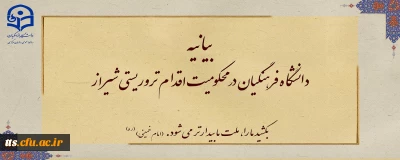 بیانیه
دانشگاه فرهنگیان در محکومیت اقدام تروریستی شیراز
بکشید ما را، ملت ما بیدارتر می شود. (امام خمینی (ره))
دانشگاه فرهنگیان
tts.cfu.ac.ir